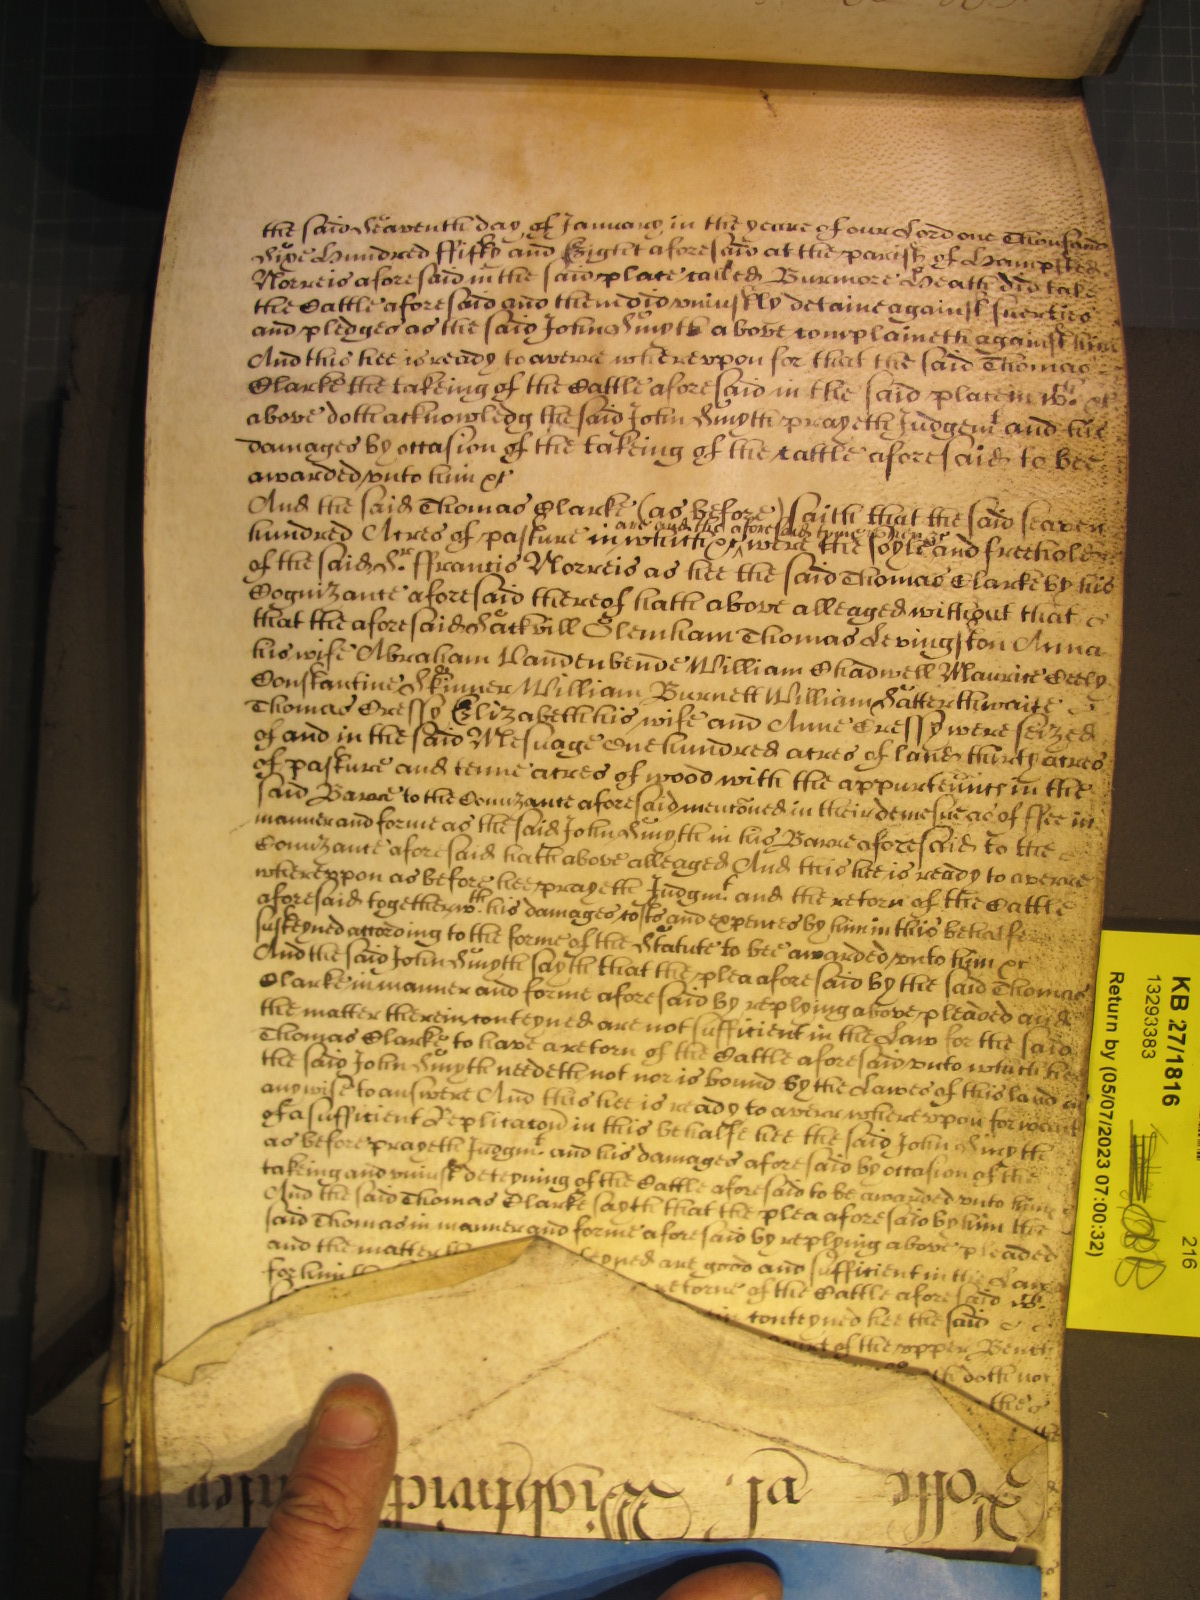 the said Seaventh day of January in the yeare of our Lord one Thousand
Sixe Hundred ffifty and Eight aforesaid at the parish of Hampsted
Norreis aforesaid in the said place called Burmore Heath did take
the Cattle aforesaid and them did uniustly detaine against suerties
and pledges as the said John Smyth above complaineth against him
And this hee is ready to averre whereupon for that the said Thomas
Clarke the takeing of the Cattle aforesaid in the said place in wch. &c
above doth acknowledg the said John Smyth prayeth Judgemt and his
damages by occasion of the takeing of the cattle aforesaid to bee
awarded unto him &c
And the said Thomas Clarke (as before) saith that the said seaven
hundred Acres of pasture in which &c are and the aforesaid tyme when &c were the soyle and freehold
of the said Sr. ffrancis Norreis as hee the said Thomas Clarke by his
Cognizance aforesaid thereof hath above alleaged without that
that the aforesaid Sackvill Glemham Thomas Levingston Anna
his wife Abraham Vandenbende William Shadwell Maurice
Constantine Skinner William Burnett William Satterthwaite
Thomas Cressy Elizabeth his wife and Anne Cressy were seized
of and in the said Mesuage one hundred acres of land thirty acres
of pasture and tenne acres of wood with the appurtennces in the
said Barre to the Conizance aforesaid mentoned in their demesne as of ffee in
manner and forme as the said John Smyth in his Barre aforesaid to the
Conizance aforesaid hath above alleaged And this hee is ready to averre
whereupon as before hee prayeth Judgmt and the return of the Cattle
aforesaid together wth his damages costs and expences by him in this behalfe
susteyned according to the forme of the Statute to bee awarded unto him &c
And the said John Smyth sayth that the plea aforesaid by the said Thomas
Clarke in manner and forme aforesaid by replying above pleaded and
the matter therein conteyned are not sufficient in the Law for the said
Thomas Clarke to have a retorn of the Cattle aforesaid unto which hee
the said John Smyth needeth not nor is bound by the Lawes of this land in
any wise to answere And this hee is ready to averr whereupon for want
of a sufficient Replicacon in this behalfe hee the said John Smyth
as before prayeth Judgmt and his damages aforesaid by occasion of the
takeing and uniust deteyning of the Cattle aforesaid to be awarded unto him
And the said Thomas Clarke sayth that the plea aforesaid by him the
said Thomas in manner and forme aforesaid by replying above pleaded
and the matter teyned are good and sufficient in the Law
for him retorne of the Cattle aforesaid
conteyned hee the said
Court of the upper Bench
doth not
the
Rolle
KB 27/1816
13293383
Return by (05/07/2023 07:00:32)
216